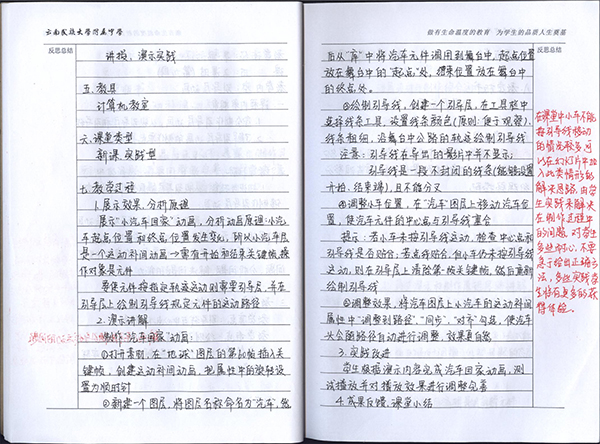 云南民族大学附属中学
反思总结
讲授、演示实践
五.教具
计算机教室
六.课堂类型
新课 实践型
七.教学过程
1.展示效果,分析原理
展示"小汽车回家"动画,分析动画原理:小汽
车起点位置和终点位置发生变化,所以小汽车层
是一个运动补间动画→需有开始和结束关键帧,操
作对象是元件
要使元件按指定轨迹运动则需要引导层,并在
引导层上绘制引导线规定元件的运动路径
2.演示讲解
制作"汽车回家"动画:
①打开素材,在"地球"图层的第 帧插入关
键帧,创建运动补间动画,把属性中的旋转设
置为顺时针
②新建一个图层,将图层名称命名为"汽车",然
做有生命温度的教育 为学生的品质人生奠基
反思总结
后从"库"中将汽车元件调用到舞台中,起点位置
放在舞台中的"起点"处,结束位置放在舞台中
的终点处。
③绘制引导线,创建一个引导层,在工具栏中
选择线条工具,设置线条颜色(原则:便于观察),
线条粗细,沿舞台中公路的轨迹绘制引导线
注意:引导线在导出的影片中并不显示;
引导线是一段不封闭的线条(能够设置
开始,结束端),且不能分叉
④调整小车位置,在"汽车"图层上移动汽车位
置,使汽车元件的中心点与引导线重合
提示:若小车未按引导线运动,检查中心点和
引导线是否贴合;若点线贴合,但小车仍未按引导线
运动,则在引导层上清除第一帧关键帧,然后重新
绘制引导线
⑤调整效果,将汽车图层上小汽车的运动补间
属性中"调整到路径","同步","对齐"勾选,使汽车
大会随路径自动进行调整,效果更自然
3.实践改进
学生根据演示内容完成汽车回家动画,测
试播放并对播放效果进行调整完善
4.成果反馈,课堂小结
在课堂中小车不能
按引导线移动
的情况较多,可
以在幻灯片中加
入此类情形的
解决思路,由学
生实践来解决
在制作过程中
的问题,对学生
多些耐心,不要
急于给出正确方
法,多些实践学
生将有更多的获
得体验。